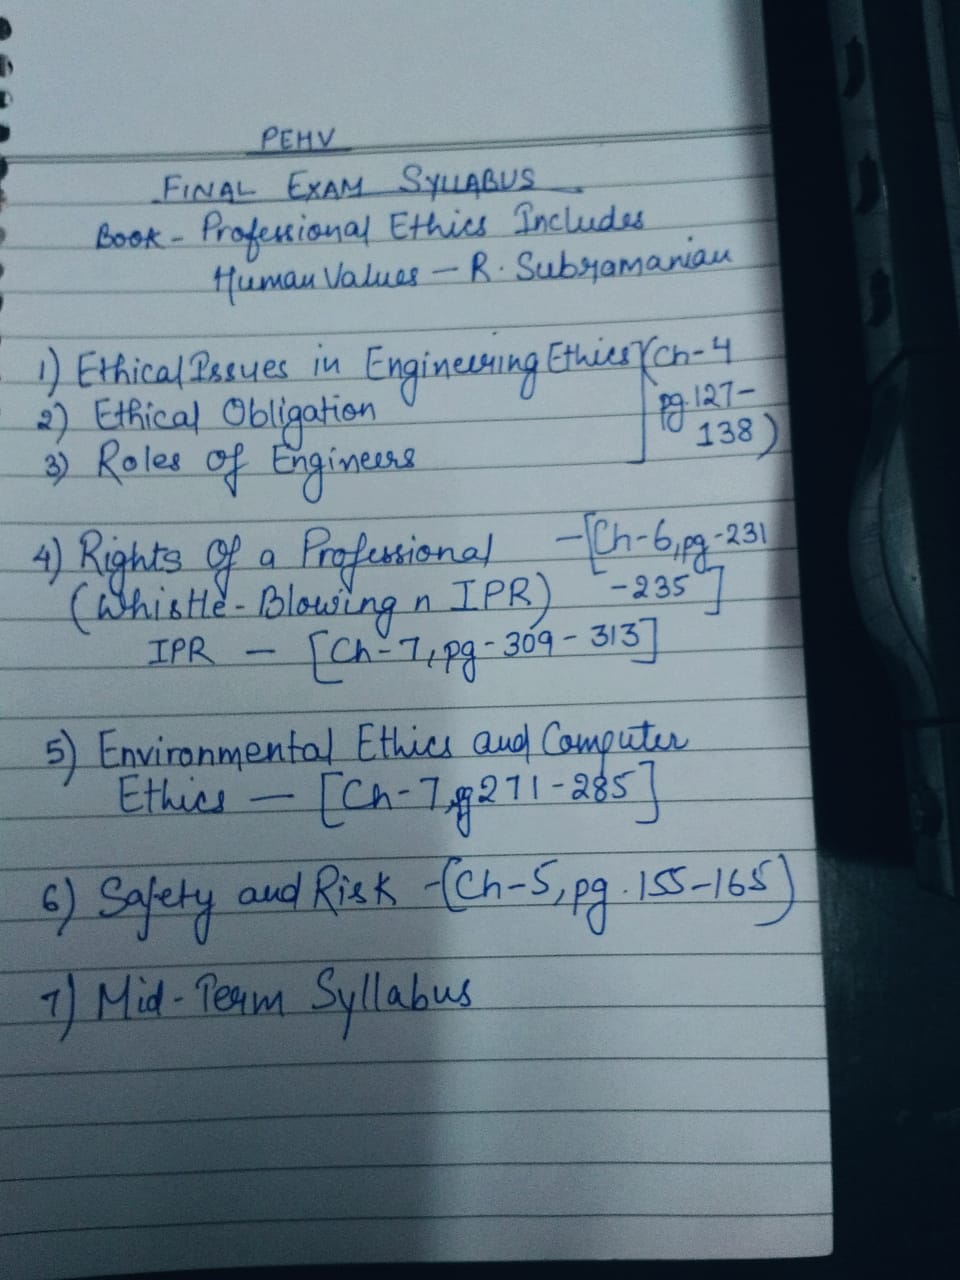 PEHV
FINAL EXAM SYLLABUS
Book - Professional Ethics Includes
Human Values - R. Subramanian
1) Ethical Issues in Engineering Ethics (Ch-4
2) Ethical Obligation pg. 127-
3) Roles of Engineers 138)
4) Rights Of a Professional - [Ch-6, pg-231
(Whistle-Blowing n IPR) -235]
IPR - [Ch-7, pg-309-313]
5) Environmental Ethics and Computer
Ethics - [Ch-7, pg 271-285]
6) Safety and Risk - (Ch-5, pg. 155-165)
7) Mid-Term Syllabus